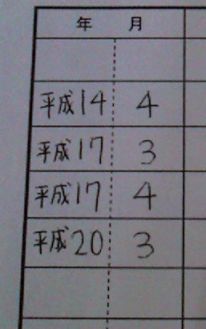 年 月
平成14 4
平成17 3
平成17 4
平成20 3